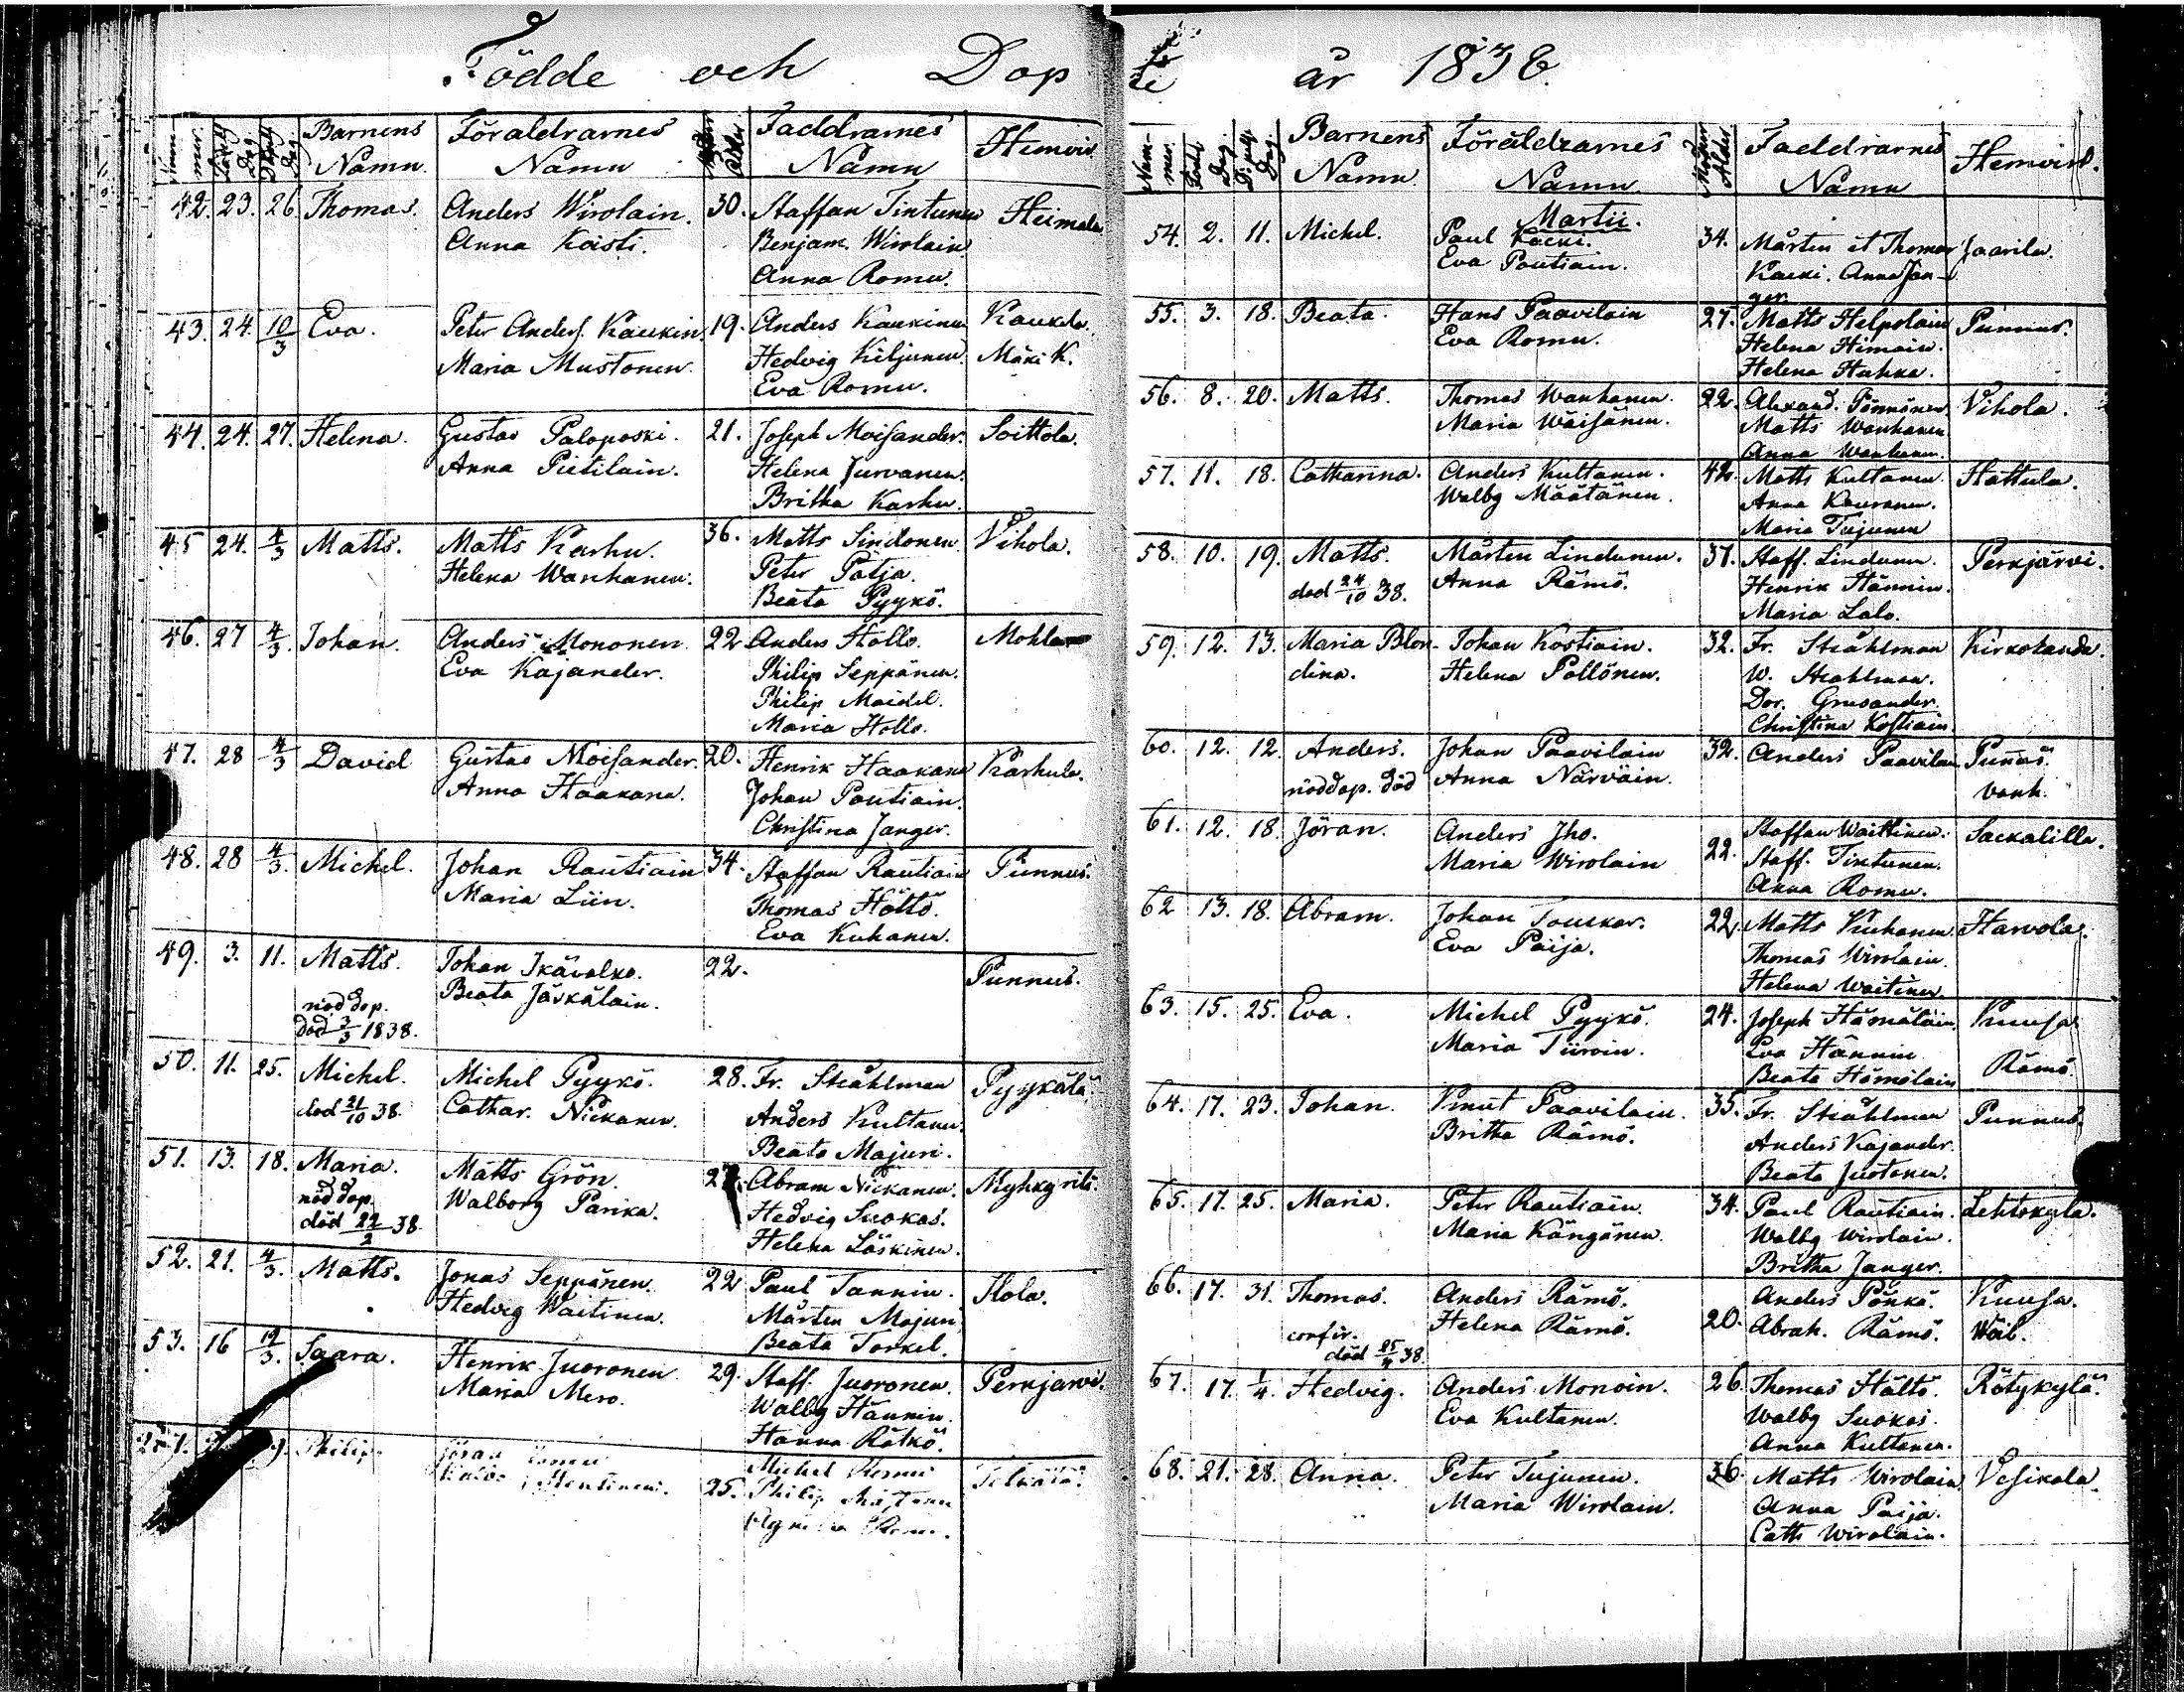 Födde och Döpte år 1838.
Nummer. Född Dag Döpt Dag Barnens Namn. Föräldrarnes Namn Moders Ålder Faddrarnes Namn Hemvist
42. 23. 26. Thomas. Anders Wirolain. 30. Staffan Tintunen Heimala
Anna Koisti. Benjam. Wirolain.
Anna Romu.
43. 24. 10/3 Eva. Peter Anders. Kaukin. 19. Anders Kaukinen Kaukila.
Maria Mustonen. Hedvig Kiljunen. Mäki K.
Eva Romu.
44. 24. 27. Helena. Gustav Paloposki. 21. Joseph Moisander. Soittola.
Anna Pietiläin. Helena Jurvanen.
Britha Karhu.
45 24. 4/3 Matts. Matts Karhu. 36. Matts Sindonen. Vihola.
Helena Wanhanen. Peter Patja.
Beata Pyykö.
46. 27 4/3. Johan. Anders Mononen. 22 Anders Hollo. Mohla
Eva Kajander. Philip Seppänen.
Philip Maidel.
Maria Hollo.
47. 28 4/3 David Gustav Moisander. 20. Henrik Haakana Karhula.
Anna Haakana. Johan Poutiain.
Christina Janger.
48. 28 4/3. Michel. Johan Rautiain 34. Staffan Rautiain Punnus.
Maria Liin. Thomas Hölttö.
Eva Kuhanen.
49. 3. 11. Matts. Johan Ikävalko. 22. Punnus.
nöd dop. Beata Jäskäläin.
död 3/3 1838.
50. 11. 25. Michel. Michel Pyykö. 28. Fr. Stråhlman Pyykälä
död 21/10 38. Cathar. Nickanen. Anders Kultanen.
Beata Majuri.
51. 13. 18. Maria. Matts Grön. Abram Nickanen.
nöd dop. Walborg Parika. Hedvig Suokas.
död 22/2 38. Helena Läskinen.
52. 21. 4/3. Matts. Jonas Seppänen. 22 Paul Tannin. Ilola.
Hedvig Waitinen. Mårten Majuri
Beata Torkel.
53. 16 19/3. Saara. Henrik Juoronen 29. Staff. Juoronen. Perkjärvi.
Maria Mero. Walbg Hännin.
Hanna Rätkö.
Philip 25. Michel Romu
Philip
54. 2. 11. Michel. Martii.
Paul Kaeki. 34. Mårten et Thomas Jaarila.
Eva Poutiain. Kaeki. Anna Janger
55. 3. 18. Beata. Hans Paavilain 27. Matts Helpolain Punnus.
Eva Romu. Helena Himain.
Helena Huhka.
56. 8. 20. Matts. Thomas Wanhanen. 22. Alexand. Pönnönen Vihola.
Maria Wäisänen. Matts Wanhanen
Anna Wanhanen.
57. 11. 18. Catharina. Anders Kultanen. 42. Matts Kultanen. Hattula.
Walbg Määtänen. Anna Kauranen.
Maria Tujunen
58. 10. 19. Matts. Mårten Lindunen. 37. Staff. Lindunen. Perkjärvi.
död 24/10 38. Anna Rämö. Henrik Hännin.
Maria Lalo.
59. 12. 13. Maria Blon- Johan Kostiain. 32. Fr. Stråhlman Kirkolanda.
dina. Helena Pöllönen. W. Stråhlman.
Dor. Grusander.
Christina Kostiain.
60. 12. 12. Anders. Johan Paavilain 32. Anders Paavilain Punnus.
nöddop. död Anna Närväin. vanh.
61. 12. 18. Jöran. Anders Iho. 22. Staffan Waittinen. Sackalilla.
Maria Wirolain Staff. Tintunen.
Anna Romu.
62 13. 18. Abram. Johan Touckar. 22. Matts Kuhanen. Harvola.
Eva Paija. Thomas Wirolain.
Helena Waitinen.
63. 15. 25. Eva. Michel Pyykö. 24. Joseph Hämäläin Kuusa
Maria Tiiroin. Eva Hännin Rämö.
Beata Hämäläin
64. 17. 23. Johan. Knut Paavilain. 35. Fr. Stråhlman Punnus.
Britha Rämö. Anders Kajander.
Beata Juotonen.
65. 17. 25. Maria. Peter Rautiain. 34. Paul Rautiain. Lehtokylä.
Maria Kängänen. Walbg Wirolain.
Britha Janger.
66. 17. 31. Thomas. Anders Rämö. 20. Anders Pönkö. Kuusa.
confir. Helena Rämö. Abrah. Rämö. Wäit.
död 25/4 38.
67. 17. 1/4. Hedvig. Anders Monoin. 26. Thomas Hölttö. Rötykylä.
Eva Kultanen. Walbg Suokas.
Anna Kultanen.
68. 21. 28. Anna. Peter Tujunen. 36. Matts Wirolain Vesikala.
Maria Wirolain. Anna Paija.
Cath. Wirolain.